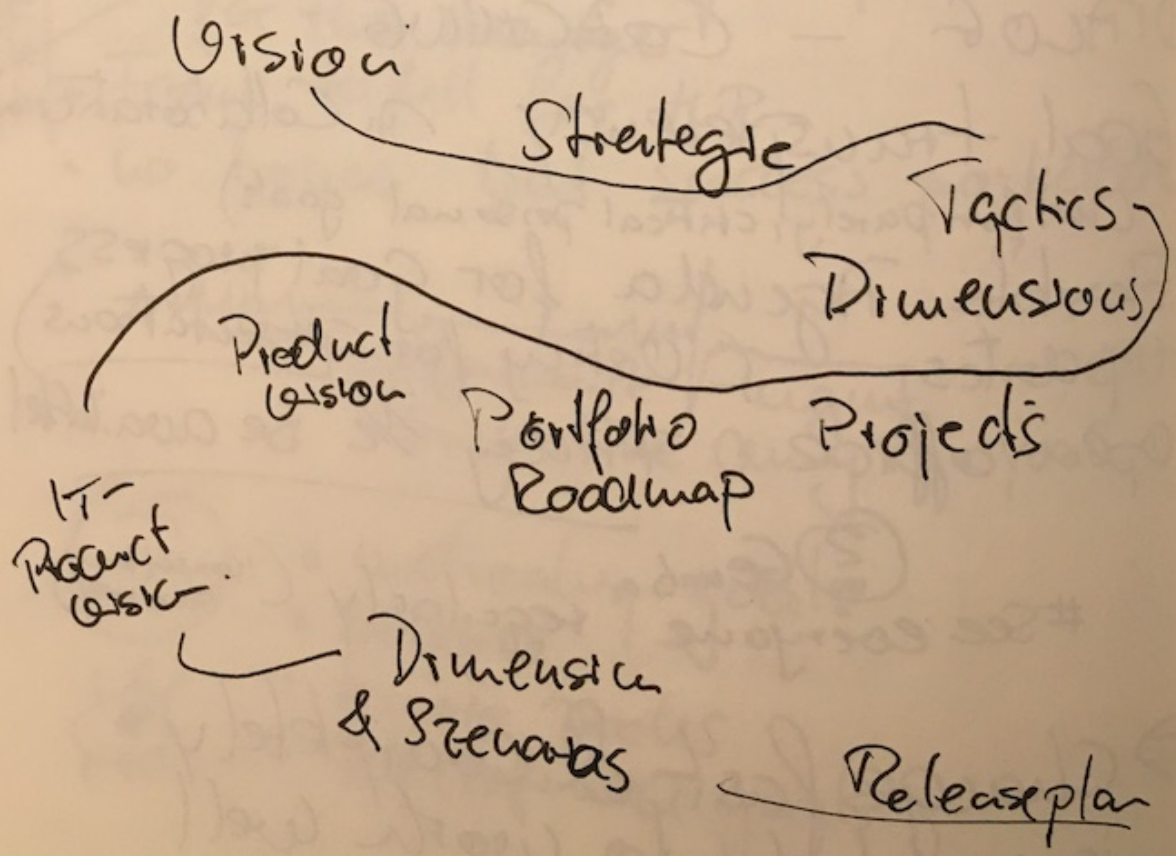 Vision
Strategie
Tactics
Dimensions
Product
Vision
Portfolio
Roadmap
Projects
IT-
Product
Vision
Dimension
& Szenarios
Releaseplan